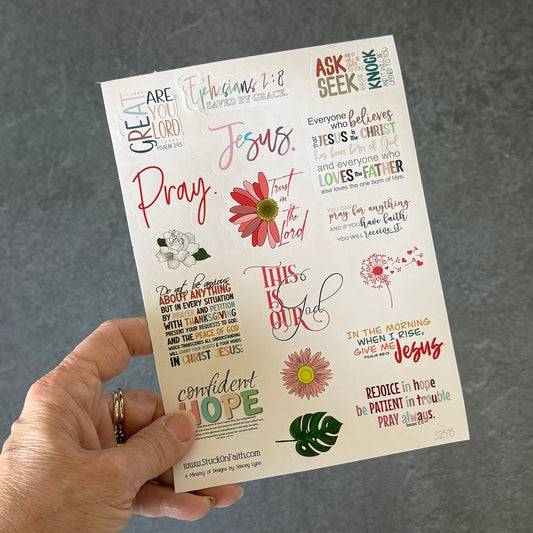 GREAT
ARE
YOU
LORD!
PSALM 145
Ephesians 2:8
SAVED BY GRACE.
ASK
AND IT WILL BE GIVEN TO YOU
SEEK
KNOCK
AND IT WILL BE OPENED TO YOU
Jesus.
Everyone
who believes
that JESUS is the CHRIST
has been born of God,
and everyone who
LOVES the FATHER
also loves the one born of Him.
Pray.
Trust
in
the
Lord
YOU CAN
pray for anything
AND IF YOU HAVE FAITH
YOU WILL receive it.
Do not be anxious
ABOUT ANYTHING
BUT IN EVERY SITUATION
BY PRAYER AND PETITION
WITH THANKSGIVING
PRESENT YOUR REQUESTS TO GOD.
AND THE PEACE OF GOD
WHICH TRANSCENDS ALL UNDERSTANDING
WILL GUARD YOUR HEARTS & YOUR MINDS
IN CHRIST JESUS!
THIS
IS
OUR
God
IN THE MORNING
WHEN I RISE,
GIVE ME
PSALM 88:13
Jesus
confident
HOPE
REJOICE in hope
be PATIENT in trouble
PRAY always.
www.StuckOnFaith.com
a Ministry of Designs by Stacey Lynn
S2515